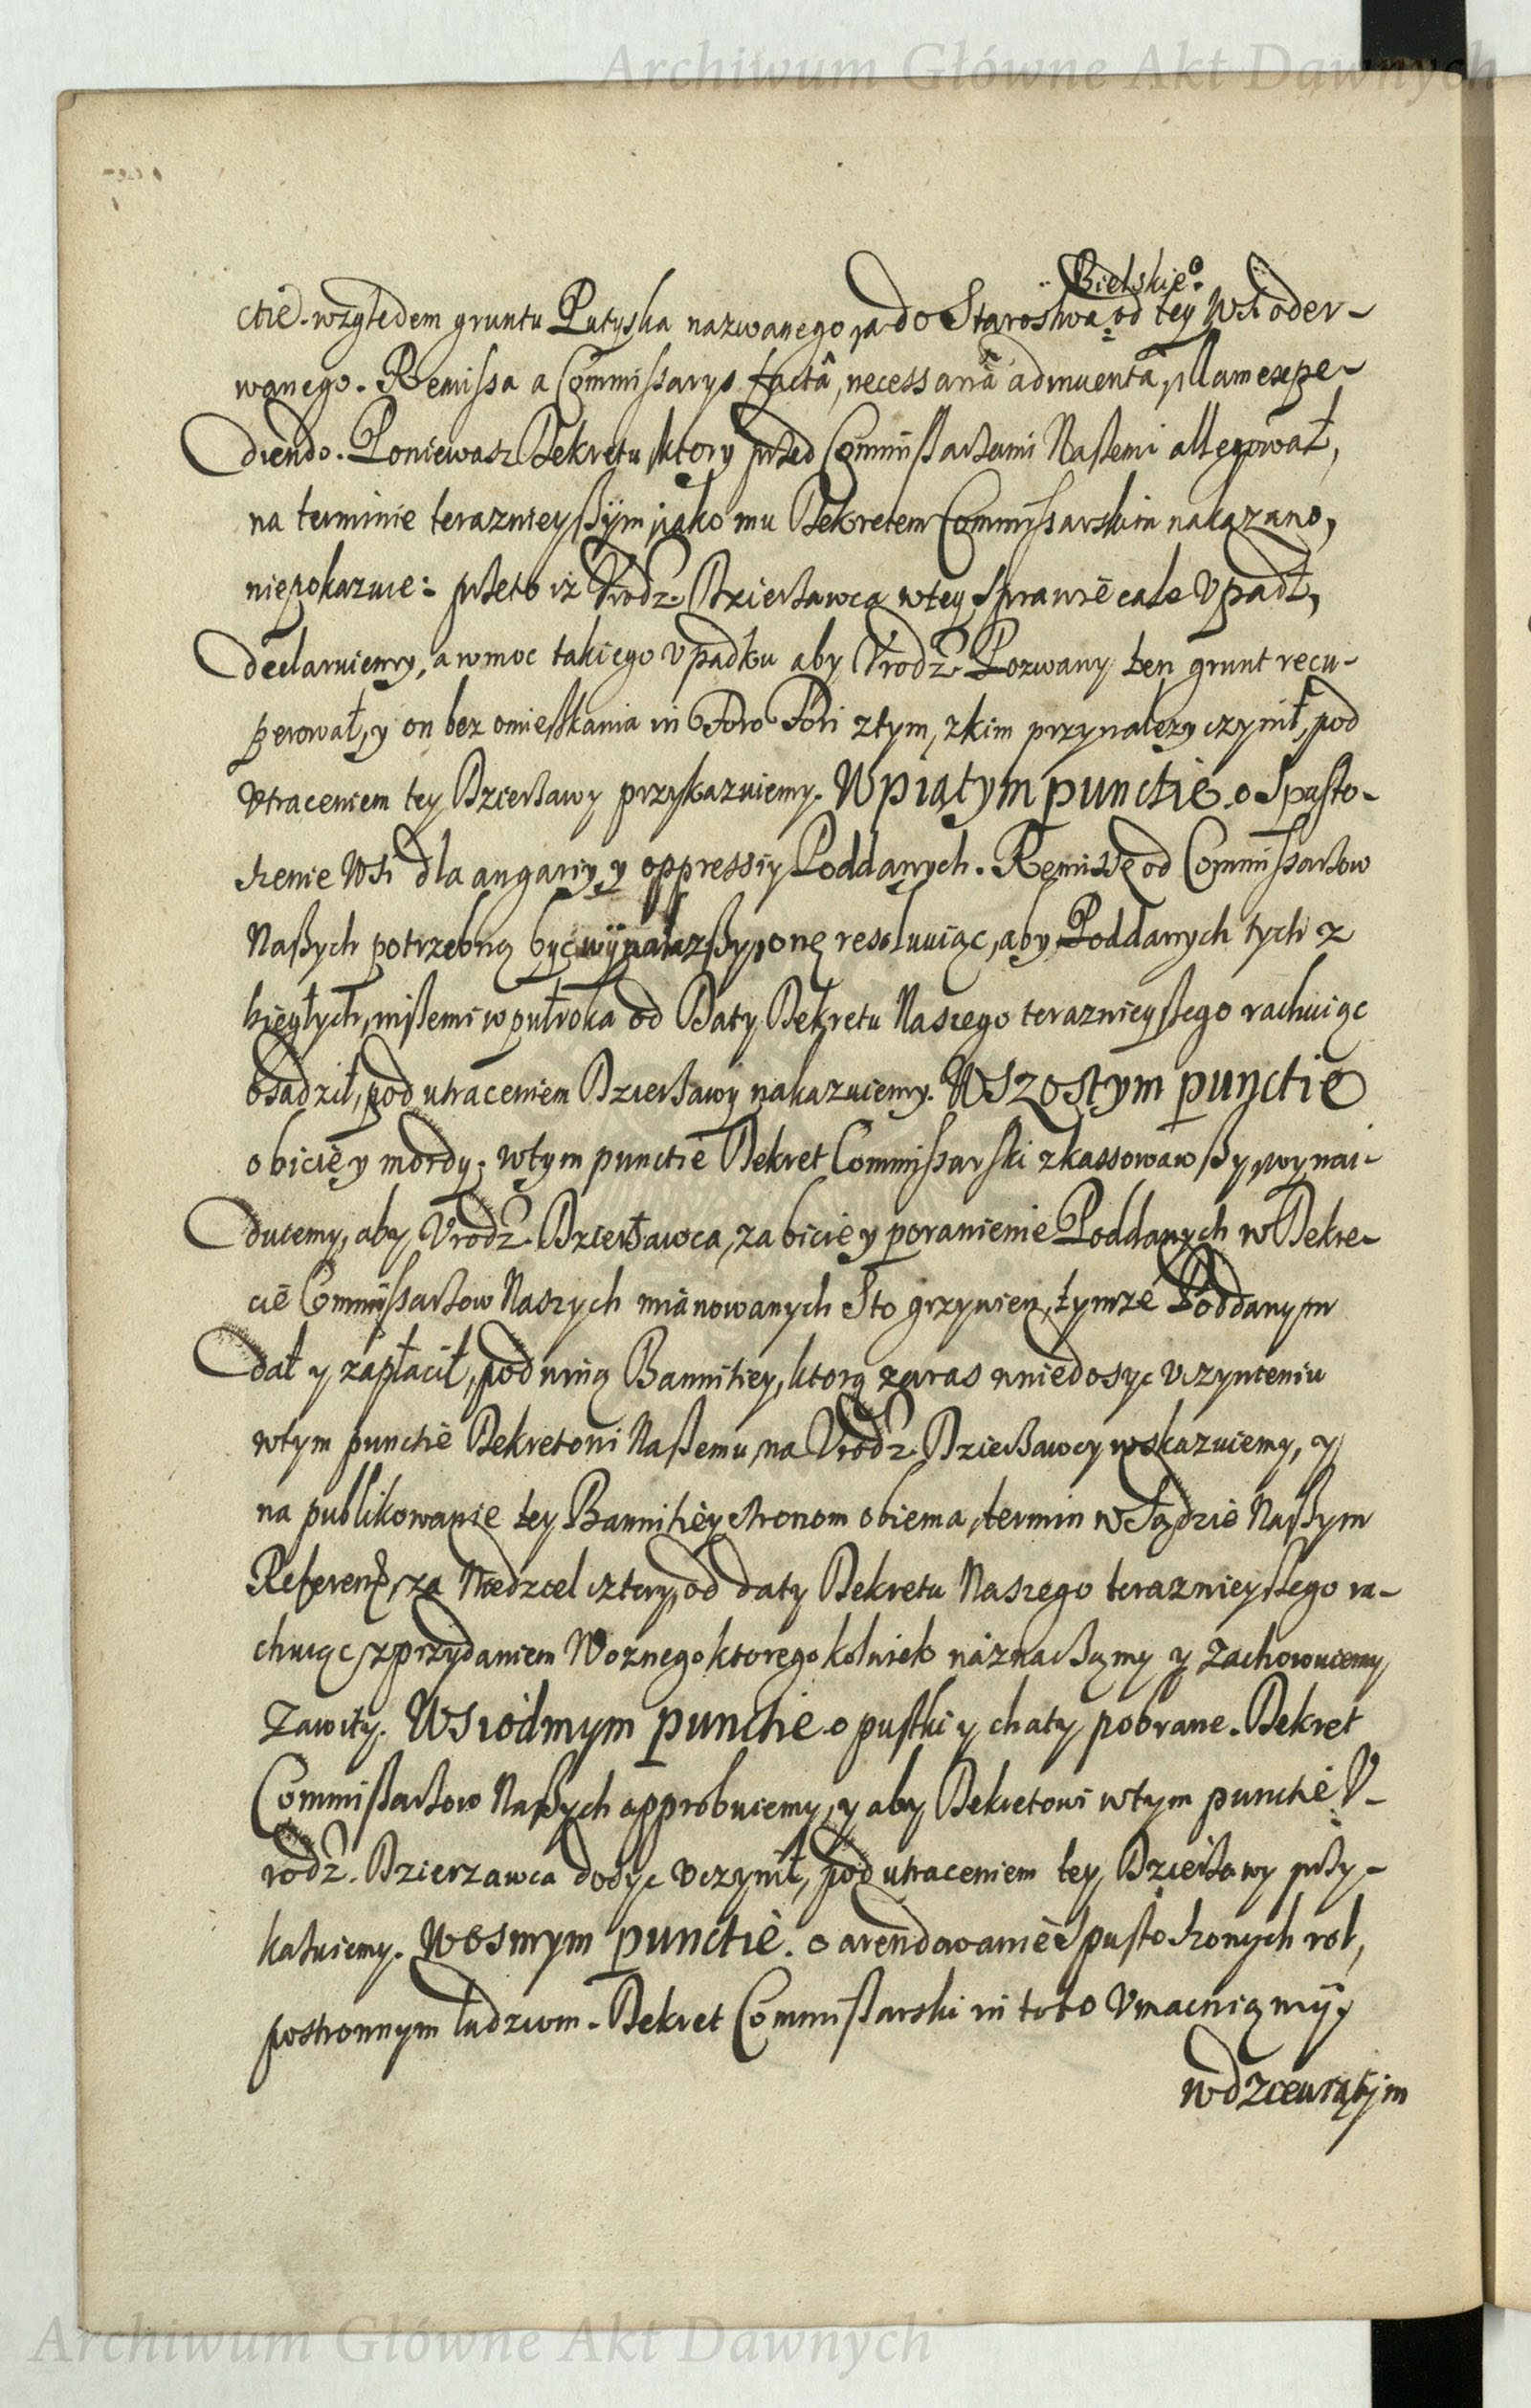 Archiwum Główne Akt Dawnych
Bielskiego
ctie. względem gruntu Putyska nazwanego, a do Starostwa od tey Wsi oder-
wanego. Remissa a Commissarys factâ, necessariâ adinuentâ, illam expe-
diendo. Poniewasz Dekretu ktory przed Commissarzami Naszemi allegował,
na terminie teraznieyszym, iako mu Dekretem Commissarskim nakazano,
niepokazuie: przeto iż Vrodz. Dzierzawca wtey sprawie cale Vpadł,
declaruiemy, a wmoc takiego Vpadku aby Vrodz. Pozwany ten grunt recu-
perował, y on bez omieszkania in Foro Fori ztym, zkim przynalezy czynił, pod
Vtraceniem tey Dzierzawy przykazuiemy. W piątym punctie. o Spusto-
szenie Wsi dla angariy, y oppressiy Poddanych. Remissę od Commissarzow
Naszych potrzebną być wynalazszy, onę resoluuiąc, aby Poddanych tych z
biegłych, inszemi w pułroka od Daty Dekretu Naszego teraznieyszego rachuiąc
osadził, pod utraceniem Dzierzawy nakazuiemy. W Szostym punctie
o bicie y mordy; wtym punctie Dekret Commissarski zkassowawszy, wynai-
duiemy, aby Vrodz. Dzierzawca, za bicie y poranienie Poddanych w Dekre-
cie Commissarzow Naszych mianowanych Sto grzywien, tymze Poddanym
dał y zapłacił, pod winą Bannitiey, ktorą zaras w niedosyc Vczynieniu
wtym punctie Dekretowi Naszemu, na Vrodz. Dzierzawcy wskazuiemy, y
na publikowanie tey Bannitiey stronom obiema, termin w Sądzie Naszym
Referend. za Niedziel cztery, od daty Dekretu Naszego teraznieyszego ra-
chuiąc, z przydaniem Woznego ktoregokolwiek náznaczamy y zachowuiemy
Zawity. W Siodmym punctie o pustki y chaty pobrane. Dekret
Commissarzow Naszych approbuiemy, y aby Dekretowi wtym punctie V-
rodz. Dzierzawca dosyc Vczynił, pod utraceniem tey Dzierzawy przy-
kazuiemy. W osmym punctie. o arendowanie spustoszonych rol,
postronnym ludziom. Dekret Commissarski in toto Vmacniamy.
W dziewiątym
Archiwum Główne Akt Dawnych